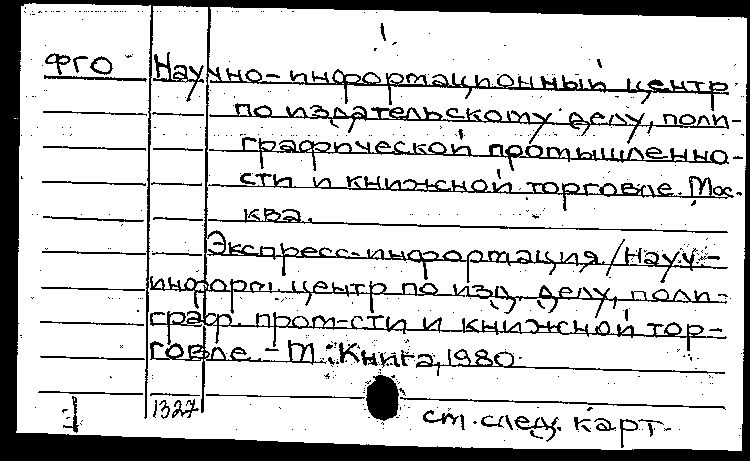 ФГО Научно-информационный центр
по издательскому делу, поли-
графической промышленно-
сти и книжной торговле. Мос-
ква.
Экспресс-информация / Науч.-
информ. центр по изд. делу, поли-
граф. пром-сти и книжной тор-
говле. - М.: Книга, 1980.
1327 ст. след. карт.